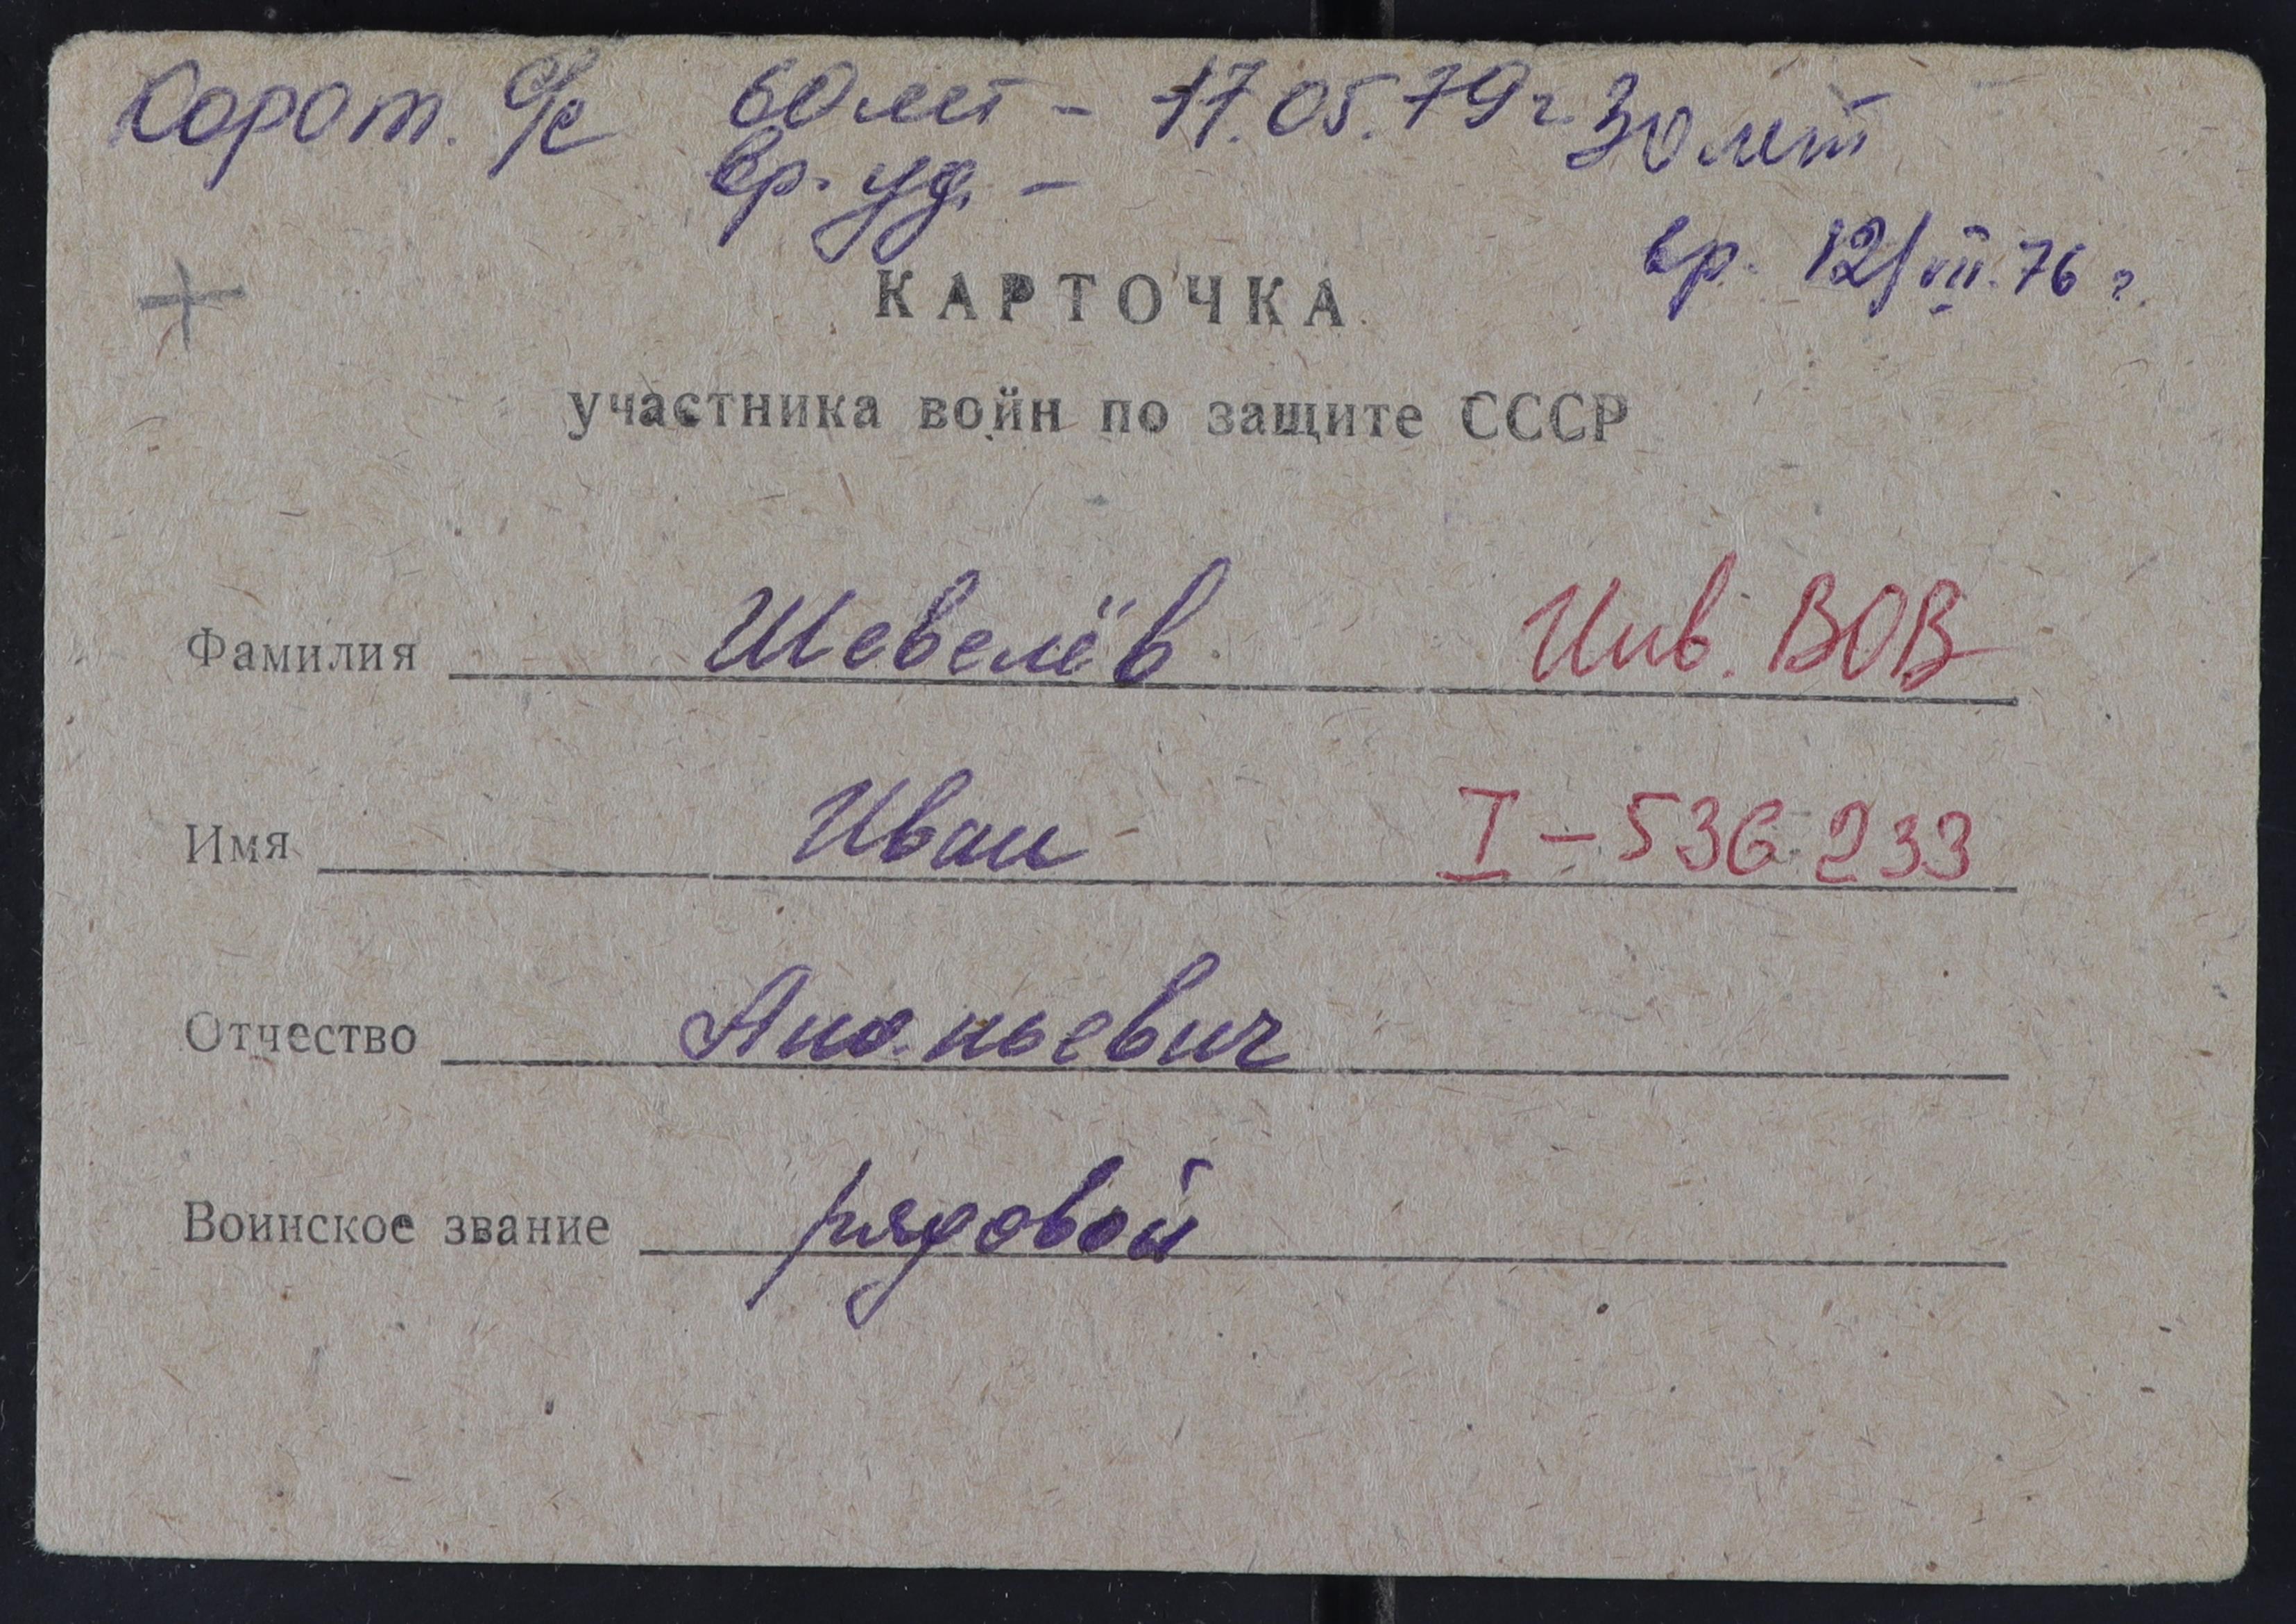 Сорот. с/с 60 лет - 17.05.79 г. 30 лет
вр. уд. -
вр. 12/VII.76 г.
КАРТОЧКА
участника войн по защите СССР
Фамилия Шевелёв Инв. ВОВ
Имя Иван I - 536 233
Отчество Ананьевич
Воинское звание рядовой